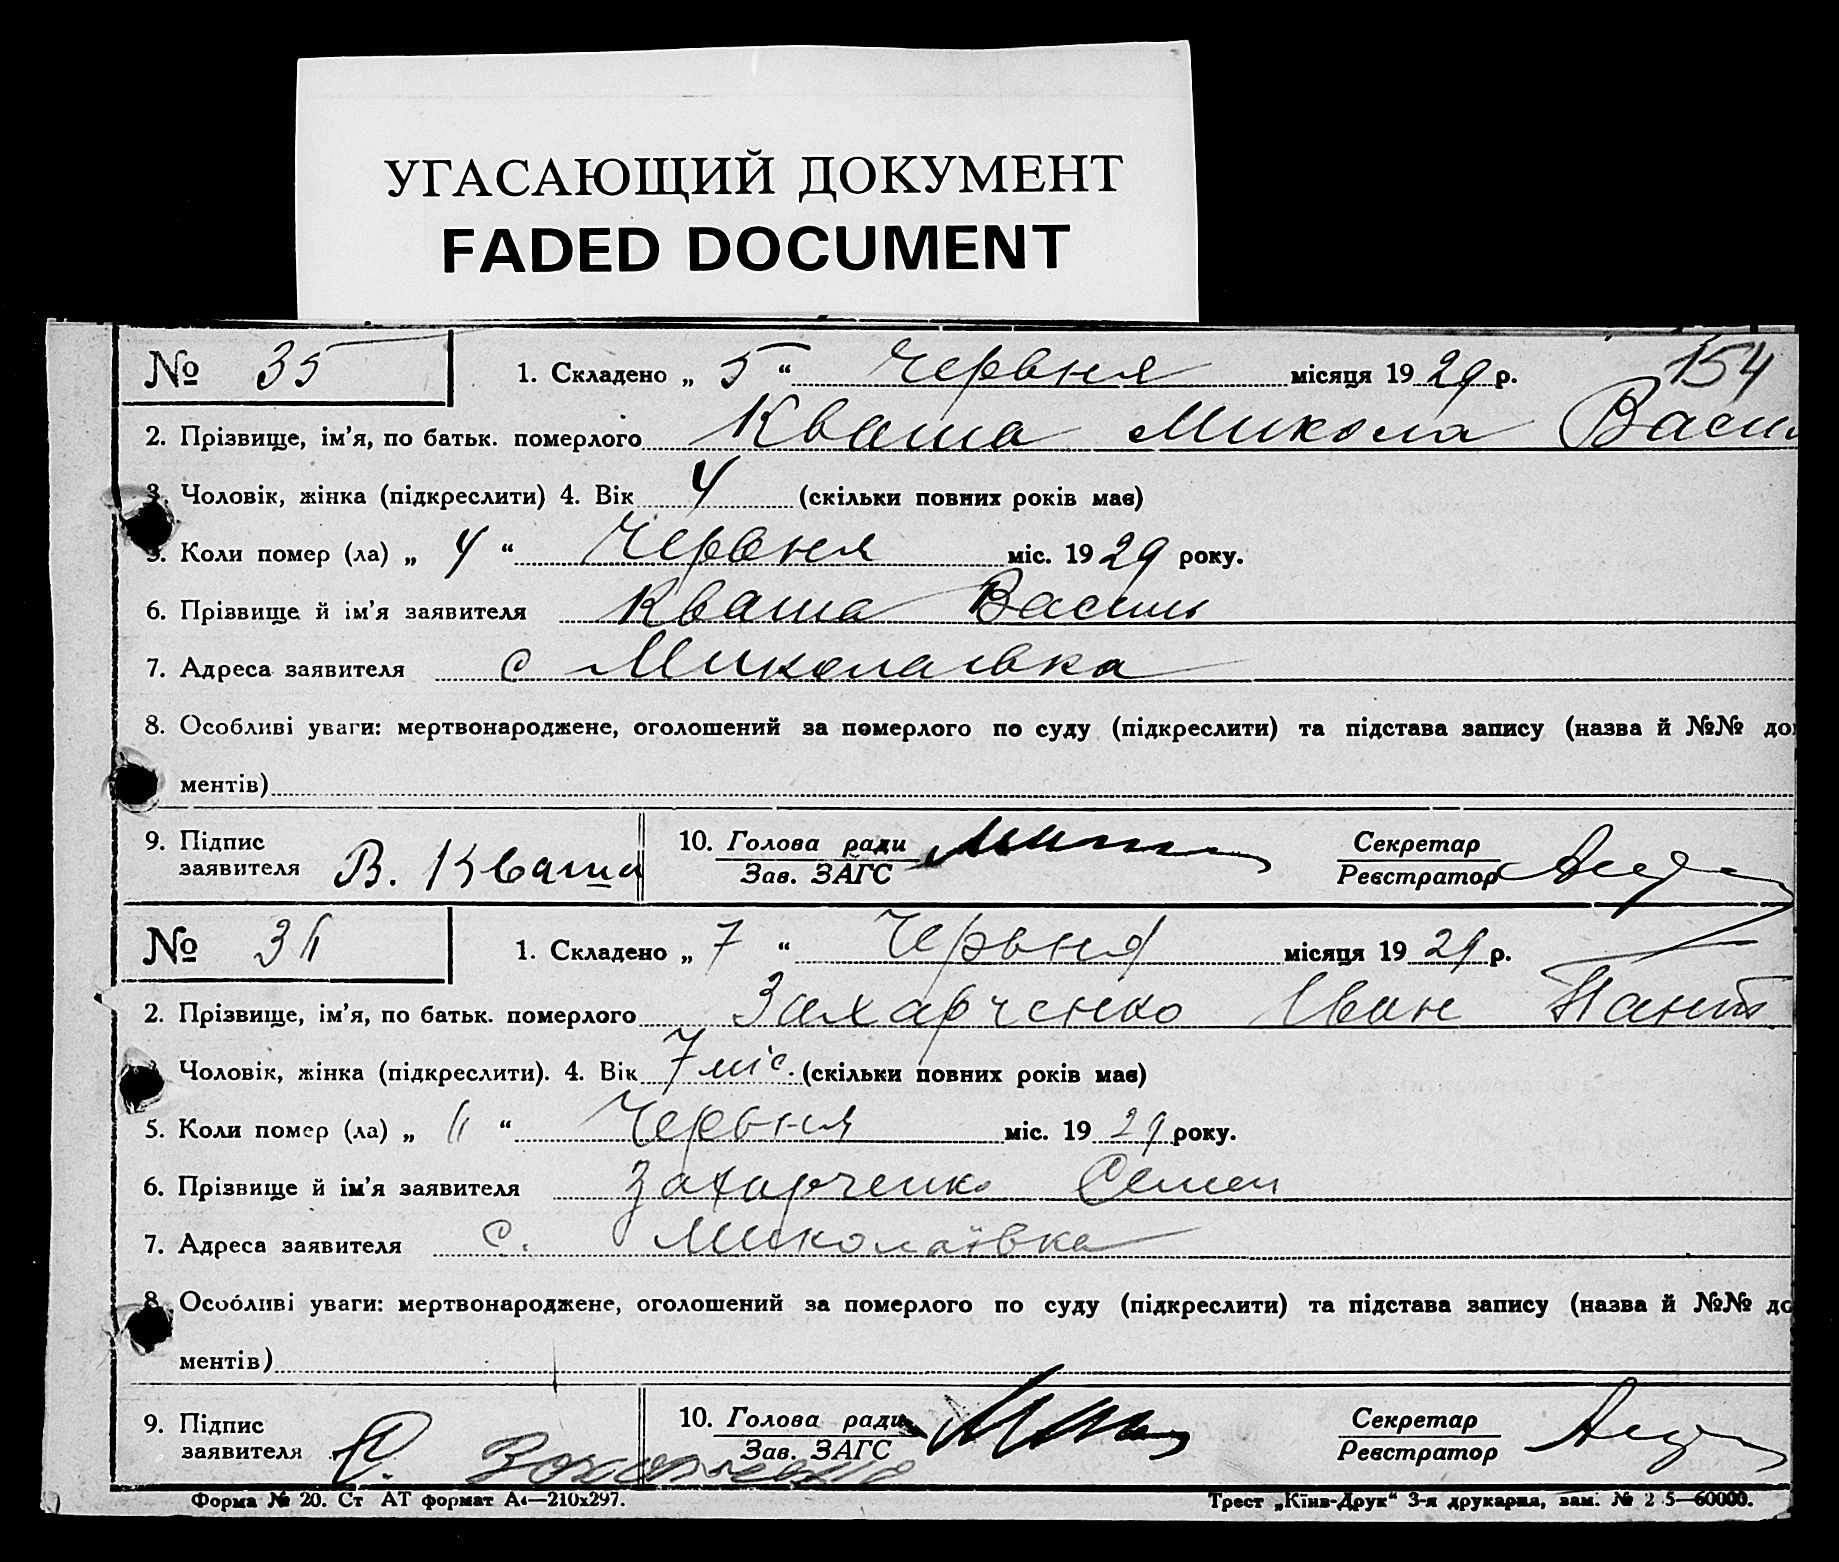 УГАСАЮЩИЙ ДОКУМЕНТ
FADED DOCUMENT
154
№ 35 1. Складено „ 5 “ Червня місяця 1929 р.
2. Прізвище, ім’я, по батьк. померлого Кваша Микола Васи
3. Чоловік, жінка (підкреслити) 4. Вік 4 (скільки повних років має)
5. Коли помер (ла) „ 4 “ Червня міс. 1929 року.
6. Прізвище й ім’я заявителя Кваша Василь
7. Адреса заявителя с Миколаївка
8. Особливі уваги: мертвонароджене, оголошений за померлого по суду (підкреслити) та підстава запису (назва й №№ до
ментів)
9. Підпис заявителя В. Кваша 10. Голова ради Зав. ЗАГС Секретар Реєстратор
№ 36 1. Складено „ 7 “ Червня місяця 1929 р.
2. Прізвище, ім’я, по батьк. померлого Захарченко Іван Пант
Чоловік, жінка (підкреслити). 4. Вік 7 міс. (скільки повних років має)
5. Коли помер (ла) „ “ Червня міс. 1929 року.
6. Прізвище й ім’я заявителя Захарченко Семен
7. Адреса заявителя с. Миколаївка
8. Особливі уваги: мертвонароджене, оголошений за померлого по суду (підкреслити) та підстава запису (назва й №№ до
ментів)
9. Підпис заявителя С. Захарченко 10. Голова ради Зав. ЗАГС Секретар Реєстратор
Форма № 20. Ст АТ формат А4—210х297. Трест „Київ-Друк“ 3-я друкарня, зам. № 2 5—60000.